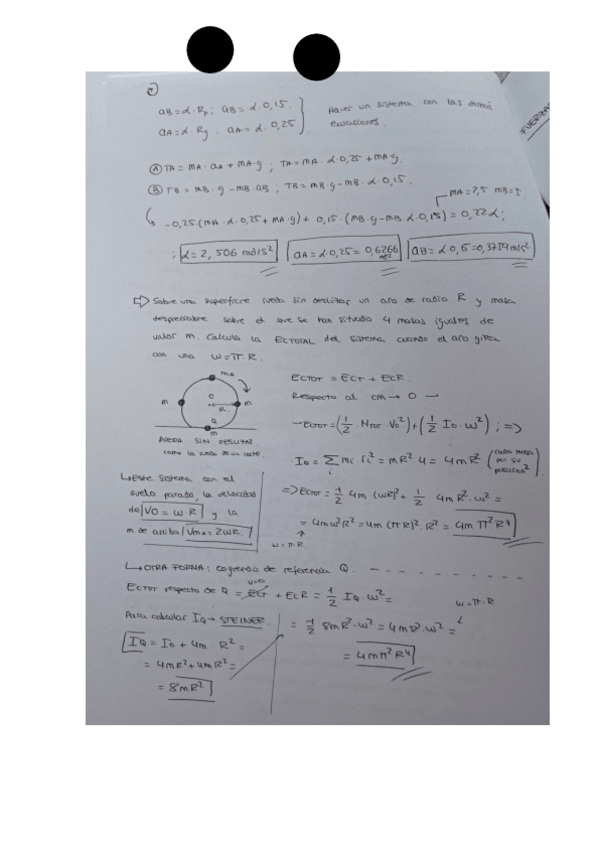 aB = α·Rp ; aB = α·0,15.
aA = α·Rg . aA = α·0,25
Hacer un sistema con las
ecuaciones.
FUERZAS
Ⓐ TA = mA·aA + mA·g ; TA = mA·α·0,25 + mA·g.
Ⓑ TB = mB·g − mB·aB ; TB = mB·g − mB·α·0,15.
mA = 7,5 mB = 5
−0,25·(mA·α·0,25 + mA·g) + 0,15·(mB·g − mB·α·0,15) = 0,22α ;
; α = 2,506 rad/s² aA = α·0,25 = 0,6266 m/s² aB = α·0,15 = 0,3759 m/s²
⇒ Sobre una superficie rueda sin deslizar un aro de radio R y masa
despreciable sobre el que se han situado 4 masas iguales de
valor m. Calcula la ECTOTAL del sistema cuando el aro gira
con una ω = π·R.
mA
m
O
R
m
Q
m
RUEDA SIN DESLIZAR
como la rueda de un coche.
ECTOT = ECT + ECR.
Respecto al cm → O →
→ ECTOT = (1/2 · MTOT V0²) + (1/2 I0·ω²) ; =>
I0 = Σi mi ri² = mR²·4 = 4mR² (cada masa por su posición²)
=> ECTOT = 1/2 4m (ωR)² + 1/2 4mR²·ω² =
= 4mω²R² = 4m (πR)²·R² = 4mπ²R⁴
ω = π·R
↳ Este sistema con el
suelo parado, la velocidad
de V0 = ω·R y la
m de arriba VmA = 2ωR.
↳ OTRA FORMA: cogiendo de referencia Q.
ECTOT respecto de Q = ECT + ECR = 1/2 IQ·ω² =
V=0
ω = π·R
Para calcular IQ → STEINER.
IQ = I0 + 4m·R² =
= 4mR² + 4mR² =
= 8mR²
= 1/2 8mR²·ω² = 4mR²·ω² =
= 4mπ²R⁴